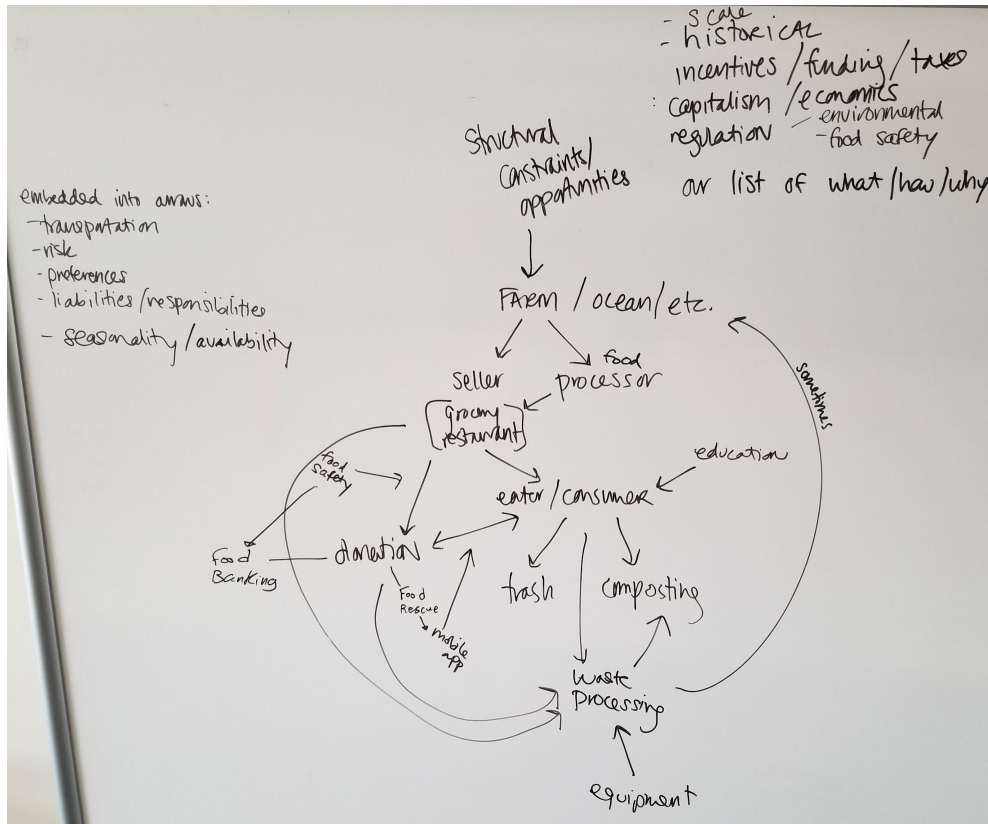 - scale
- historical
incentives / funding / taxes
: capitalism / economics
regulation - environmental
- food safety
our list of what / how / why
Structural
constraints/
opportunities
embedded into arrows:
- transportation
- risk
- preferences
- liabilities/responsibilities
- seasonality/availability
FARM / ocean/etc.
sometimes
seller
food
processor
grocery
restaurant
food
safety
education
eater/consumer
donation
food
Banking
Food
Rescue
mobile
app
trash
composting
waste
processing
equipment